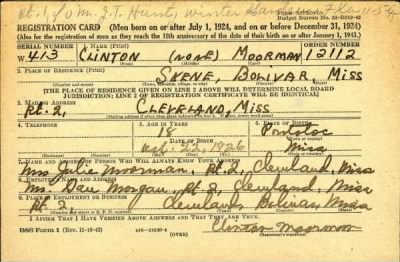 Rt. 1 c/o Mr. J. T. Hunt, Winter
Budget Bureau No. 33-R012-42
REGISTRATION CARD (Men born on or after July 1, 1924, and on or before December 31, 1924)
(Also for the registration of men as they reach the 18th anniversary of the date of their birth on or after January 1, 1943.)
SERIAL NUMBER
1. NAME (Print)
ORDER NUMBER
W 413 CLINTON (NONE) MOORMAN 12112
(First) (Middle) (Last)
2. PLACE OF RESIDENCE (Print)
SKENE, BOLIVAR, MISS
[THE PLACE OF RESIDENCE GIVEN ON LINE 2 ABOVE WILL DETERMINE LOCAL BOARD
JURISDICTION; LINE 2 OF REGISTRATION CERTIFICATE WILL BE IDENTICAL]
3. MAILING ADDRESS
Rt. 2, CLEVELAND, MISS
4. TELEPHONE
5. AGE IN YEARS
6. PLACE OF BIRTH
18
Pontotoc
DATE OF BIRTH
Oct. 22, 1926
Miss
7. NAME AND ADDRESS OF PERSON WHO WILL ALWAYS KNOW YOUR ADDRESS
Mrs Julie Moorman, Rt. 2, Cleveland, Miss
8. EMPLOYER'S NAME AND ADDRESS
Mr. Dave Morgan, Rt. 2, Cleveland, Miss
9. PLACE OF EMPLOYMENT OR BUSINESS
Rt. 2, Cleveland, Bolivar, Miss
I AFFIRM THAT I HAVE VERIFIED ABOVE ANSWERS AND THAT THEY ARE TRUE.
DSS Form 1 (Rev. 11-16-42)
Clinton Moorman
(Registrant's signature)